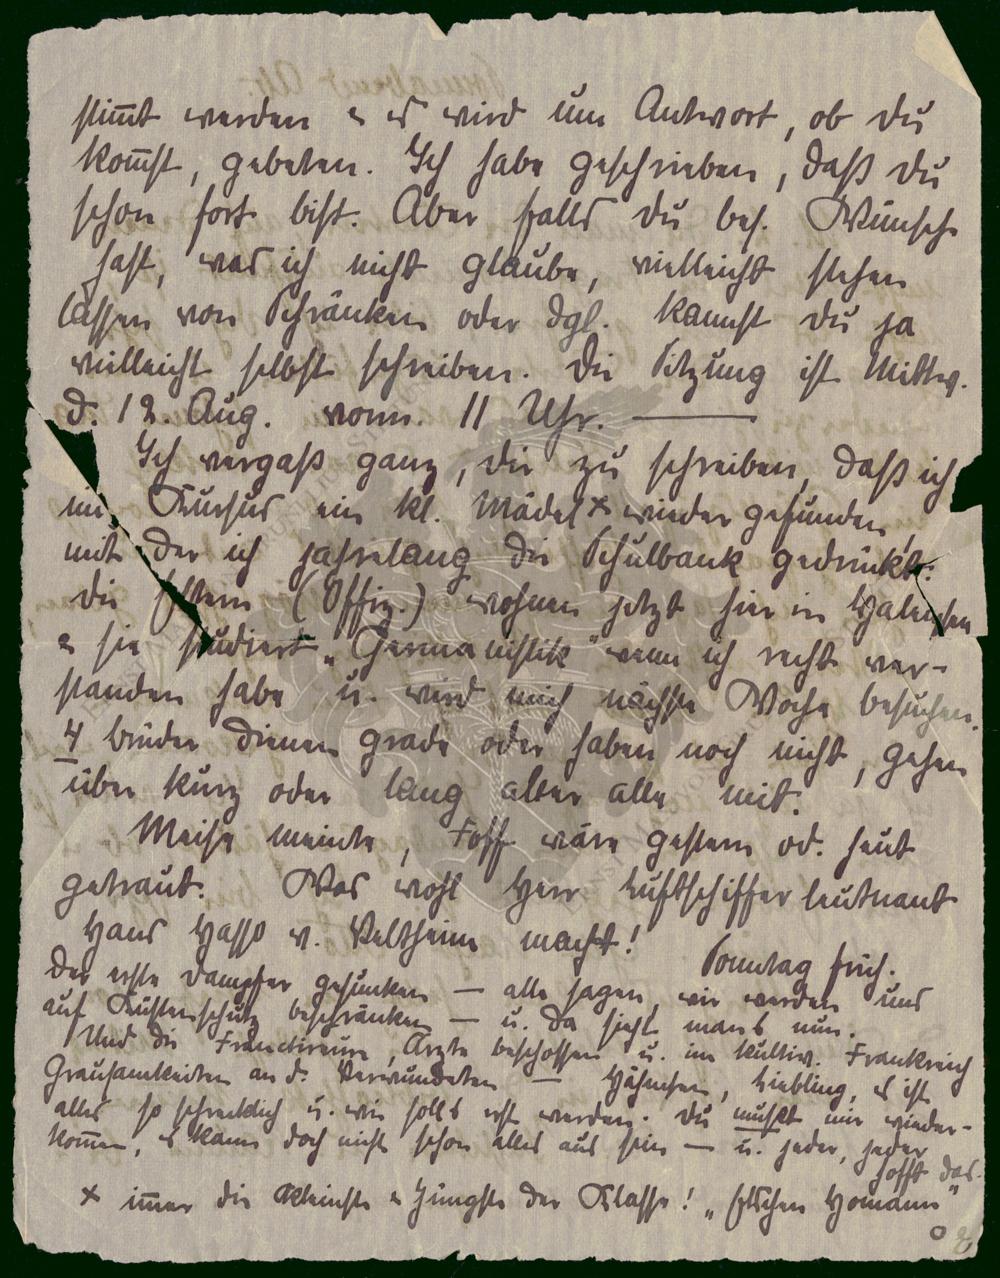 stim̄t werden u. es wird um Antwort, ob du
kom̄st, gebeten. Ich habe geschrieben, daß du
schon fort bist. Aber falls du bes. Wünsche
hast, was ich nicht glaube, vielleicht stehen
lassen von Schränken oder dgl. kannst du ja
vielleicht selbst schreiben. Die Sitzung ist Mittw.
d. 12. Aug. vorm. 11 Uhr. —
Ich vergaß ganz, dir zu schreiben, daß ich
im Kursus ein kl. Mädel x wieder gefunden,
mit der ich jahrelang die Schulbank gedrückt.
Die Eltern (Offiz.) wohnen jetzt hier in Halensee
u. sie studiert „Germanistik" wenn ich recht ver-
standen habe u. wird mich nächste Woche besuchen.
4 brüder dienen grade oder haben noch nicht, gehen
über kurz oder lang aber alle mit.
Meise meinte, Foff wäre gestern od. heut
getraut. Was wohl Herr Luftschifferleutnant
Hans Hasso v. Veltheim macht!
Sonntag früh.
Der erste Dampfer gesunken — alle sagen, wir werden uns
auf Küstenschutz beschränken — u. da sieht mans nun.
Und die Franctireure, Ärzte beschossen u. im kultiv. Frankreich
Grausamkeiten an d. Verwundeten — Hähnchen, Liebling, es ist
alles so schrecklich u. wie solls erst werden. Du mußt mir wieder-
kom̄en, es kann doch nicht schon alles aus sein — u. jeder, jeder
hofft das.
x im̄er die Kleinste u. Jüngste der Klasse! „Elschen Homann"